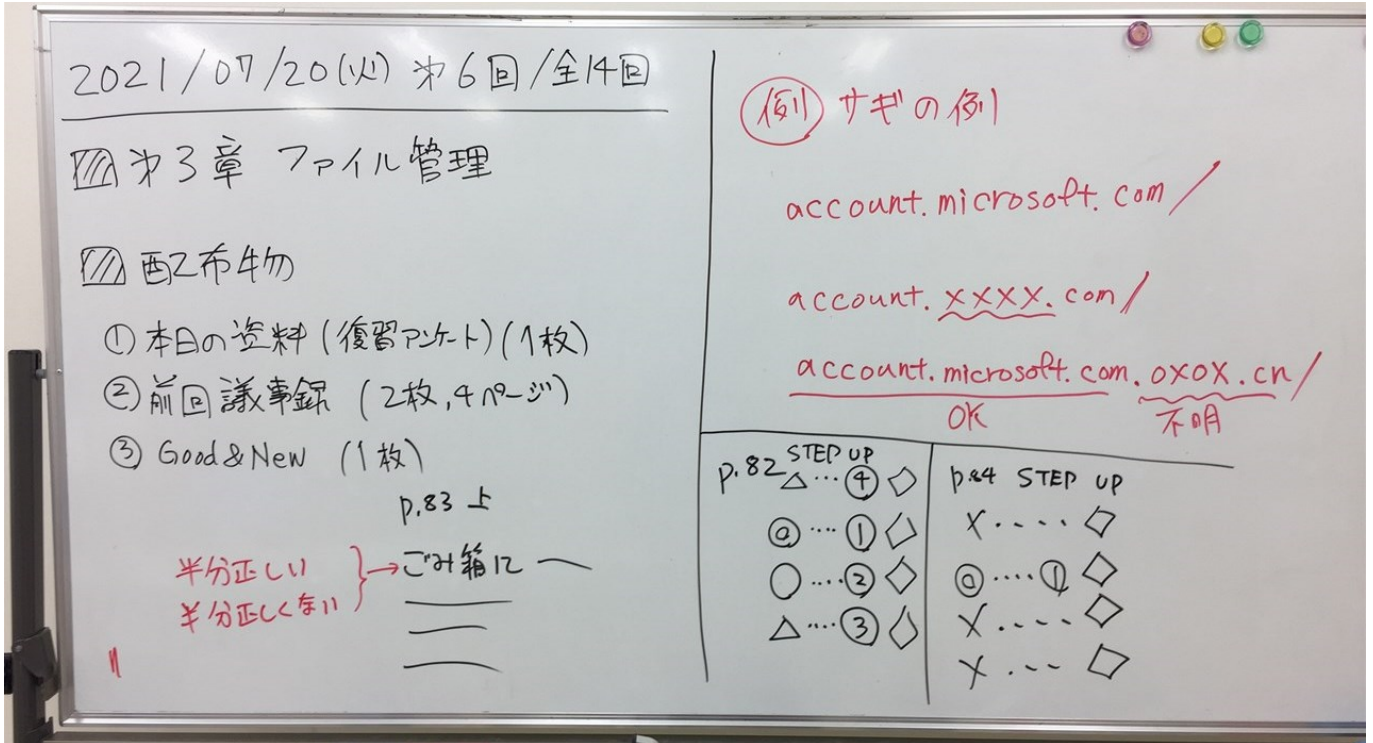 2021/07/20(火) 第6回/全14回
第3章 ファイル管理
配布物
① 本日の資料 (復習アンケート) (1枚)
② 前回議事録 (2枚,4ページ)
③ Good&New (1枚)
p.83 上
半分正しい
半分正しくない
→ごみ箱に
例 サギの例
account.microsoft.com/
account.xxxx.com/
account.microsoft.com.oxox.cn/
OK 不明
p.82 STEP UP
△…④◇
◎…①◇
○…②◇
△…③◇
p.84 STEP UP
×....◇
◎....①◇
×....◇
×...◇